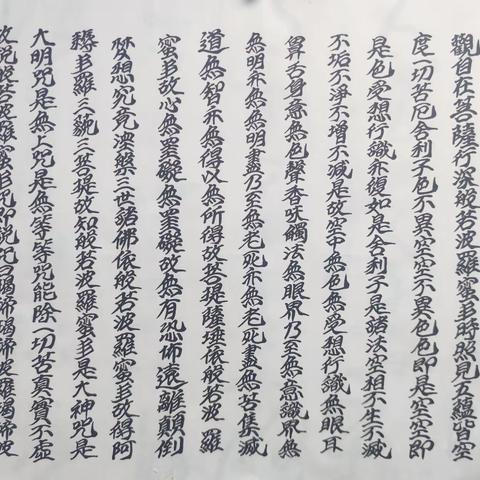 觀自在菩薩行深般若波羅蜜多時照見五蘊皆空
度一切苦厄舍利子色不異空空不異色色即是空空即
是色受想行識亦復如是舍利子是諸法空相不生不滅
不垢不淨不增不減是故空中無色無受想行識無眼耳
鼻舌身意無色聲香味觸法無眼界乃至無意識界無
無明亦無無明盡乃至無老死亦無老死盡無苦集滅
道無智亦無得以無所得故菩提薩埵依般若波羅
蜜多故心無罣礙無罣礙故無有恐怖遠離顛倒
夢想究竟涅槃三世諸佛依般若波羅蜜多故得阿
耨多羅三藐三菩提故知般若波羅蜜多是大神呪是
大明呪是無上呪是無等等呪能除一切苦真實不虛
故說般若波羅蜜多呪即說呪曰揭諦揭諦波羅揭諦波